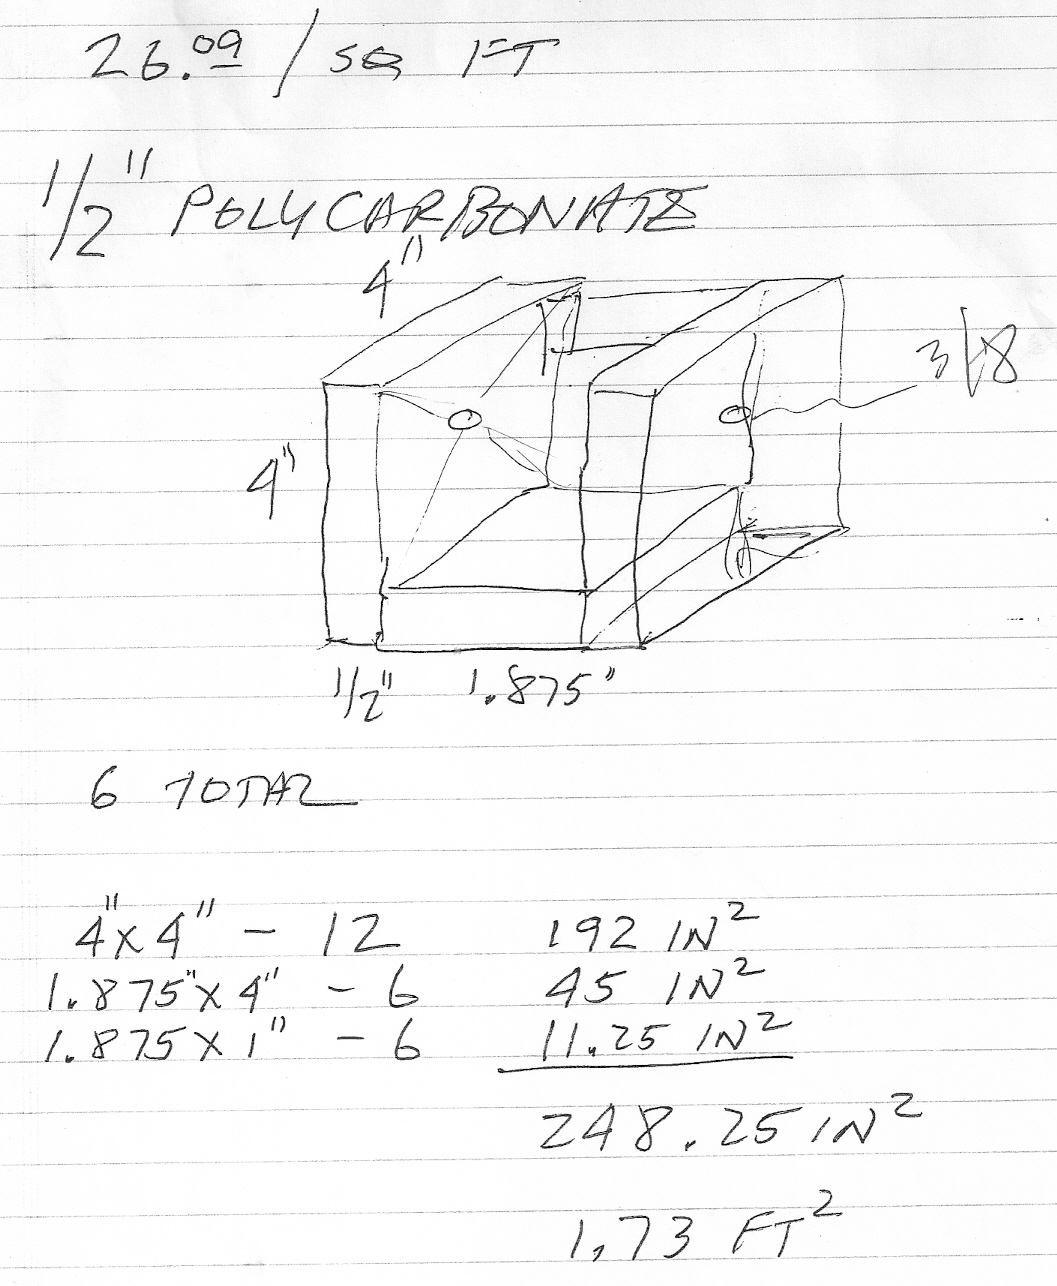 26.09 / SQ FT
1/2" POLYCARBONATE
4"
3/8
4"
1/2" 1.875"
6 TOTAL
4" x 4" - 12 192 IN²
1.875" x 4" - 6 45 IN²
1.875 x 1" - 6 11.25 IN²
248.25 IN²
1,73 FT²